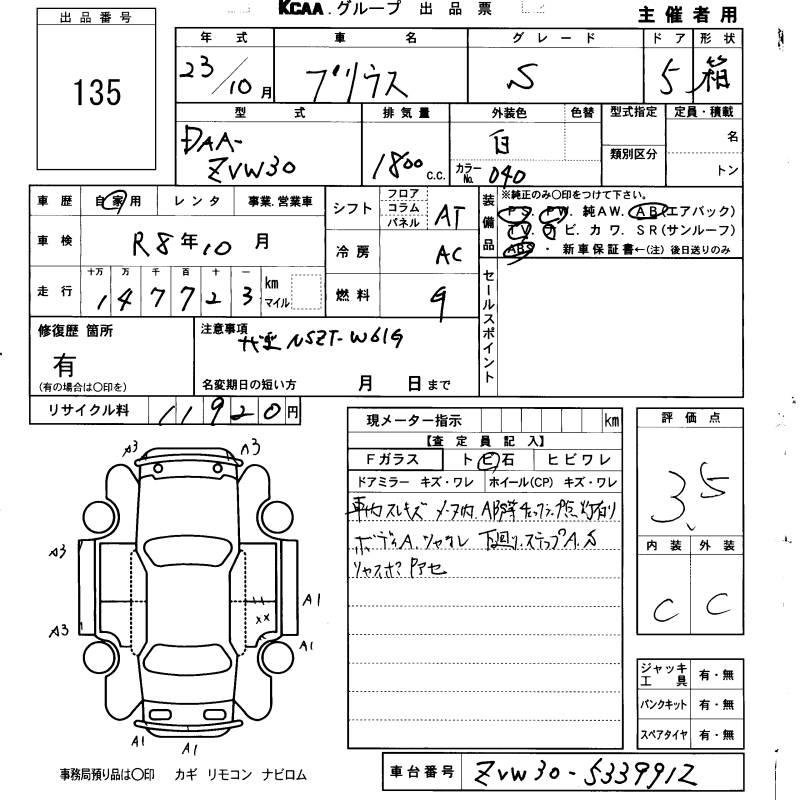 KCAA.グループ 出品票
主催者用
出品番号
135
年式 車名 グレード ドア 形状
23/10月 プリウス S 5 箱
型式 排気量 外装色 色替 型式指定 定員・積載
DAA-ZVW30 1800c.c. 白 カラーNo. 040 類別区分 名 トン
車歴 自家用 レンタ 事業.営業車
車検 R8年10月
走行 十万 万 千 百 十 一 km マイル
147723
シフト フロア コラム パネル AT
冷房 AC
燃料 G
装備品
※純正のみ〇印をつけて下さい。
PS. PW. 純AW. AB(エアバック)
TV. ナビ. カワ. SR(サンルーフ)
ABS・新車保証書←(注)後日送りのみ
セールスポイント
修復歴 箇所
有
(有の場合は〇印を)
注意事項
NSZT-W61G
名変期日の短い方 月 日まで
リサイクル料 11920円
現メーター指示 km
【査定員記入】
Fガラス トビ石 ヒビワレ
ドアミラー キズ・ワレ ホイール(CP) キズ・ワレ
車内スレキズ メーター内.ABS等チェックランプ点灯有り
ボディA. 下回り.ステップA.S
評価点
3.5
内装 外装
C C
A3 A3
A3
A3
A1
××
A1
A1
A1
ジャッキ工具 有・無
パンクキット 有・無
スペアタイヤ 有・無
事務局預り品は〇印 カギ リモコン ナビロム
車台番号 ZVW30-5339912